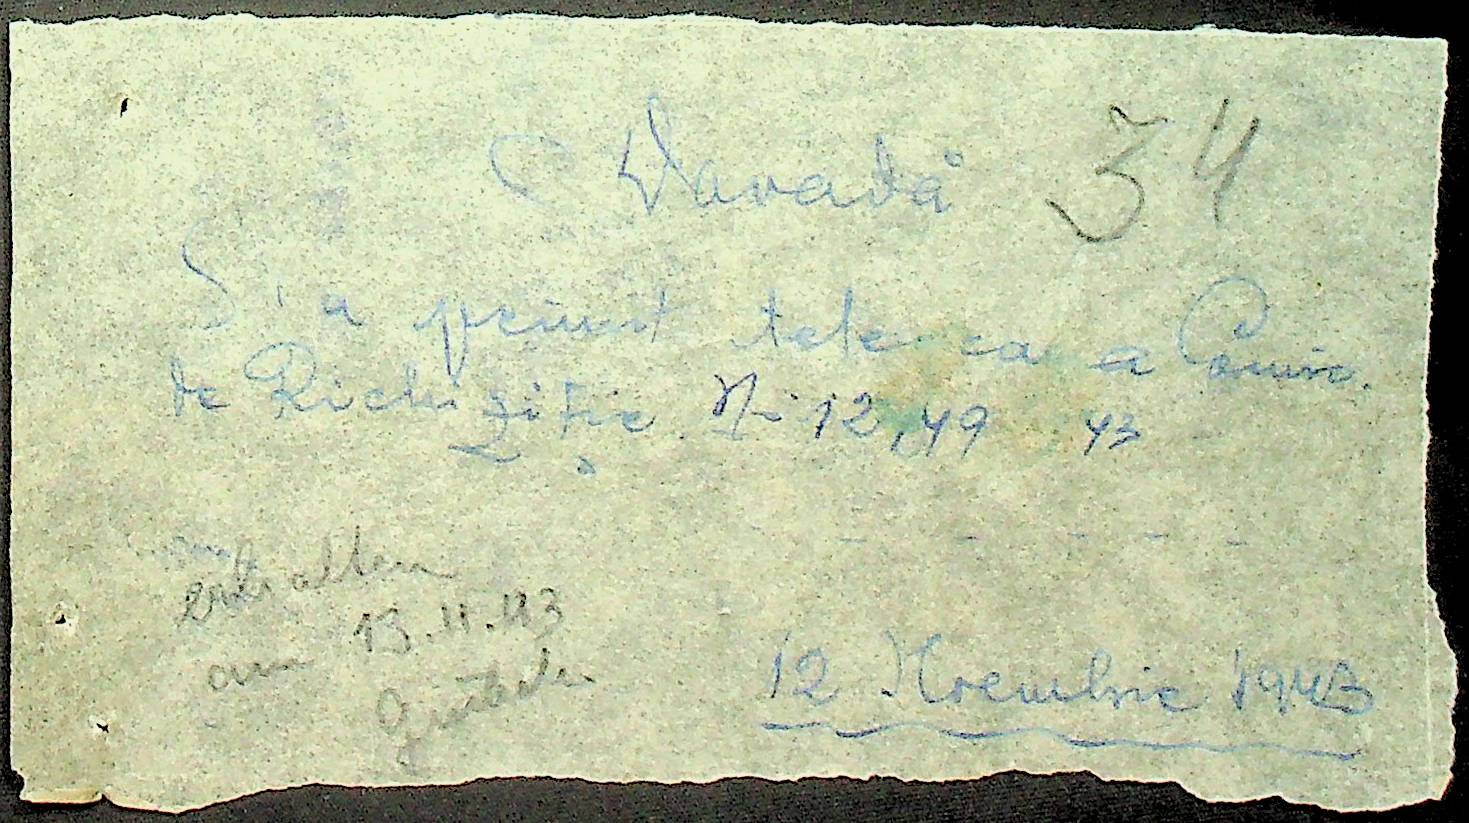 Dovadă 34
S'a primit adresa a Comis.
de Richiziție Nr 12,49 43
erhalten
am 13.11.43
12 Noembrie 1943